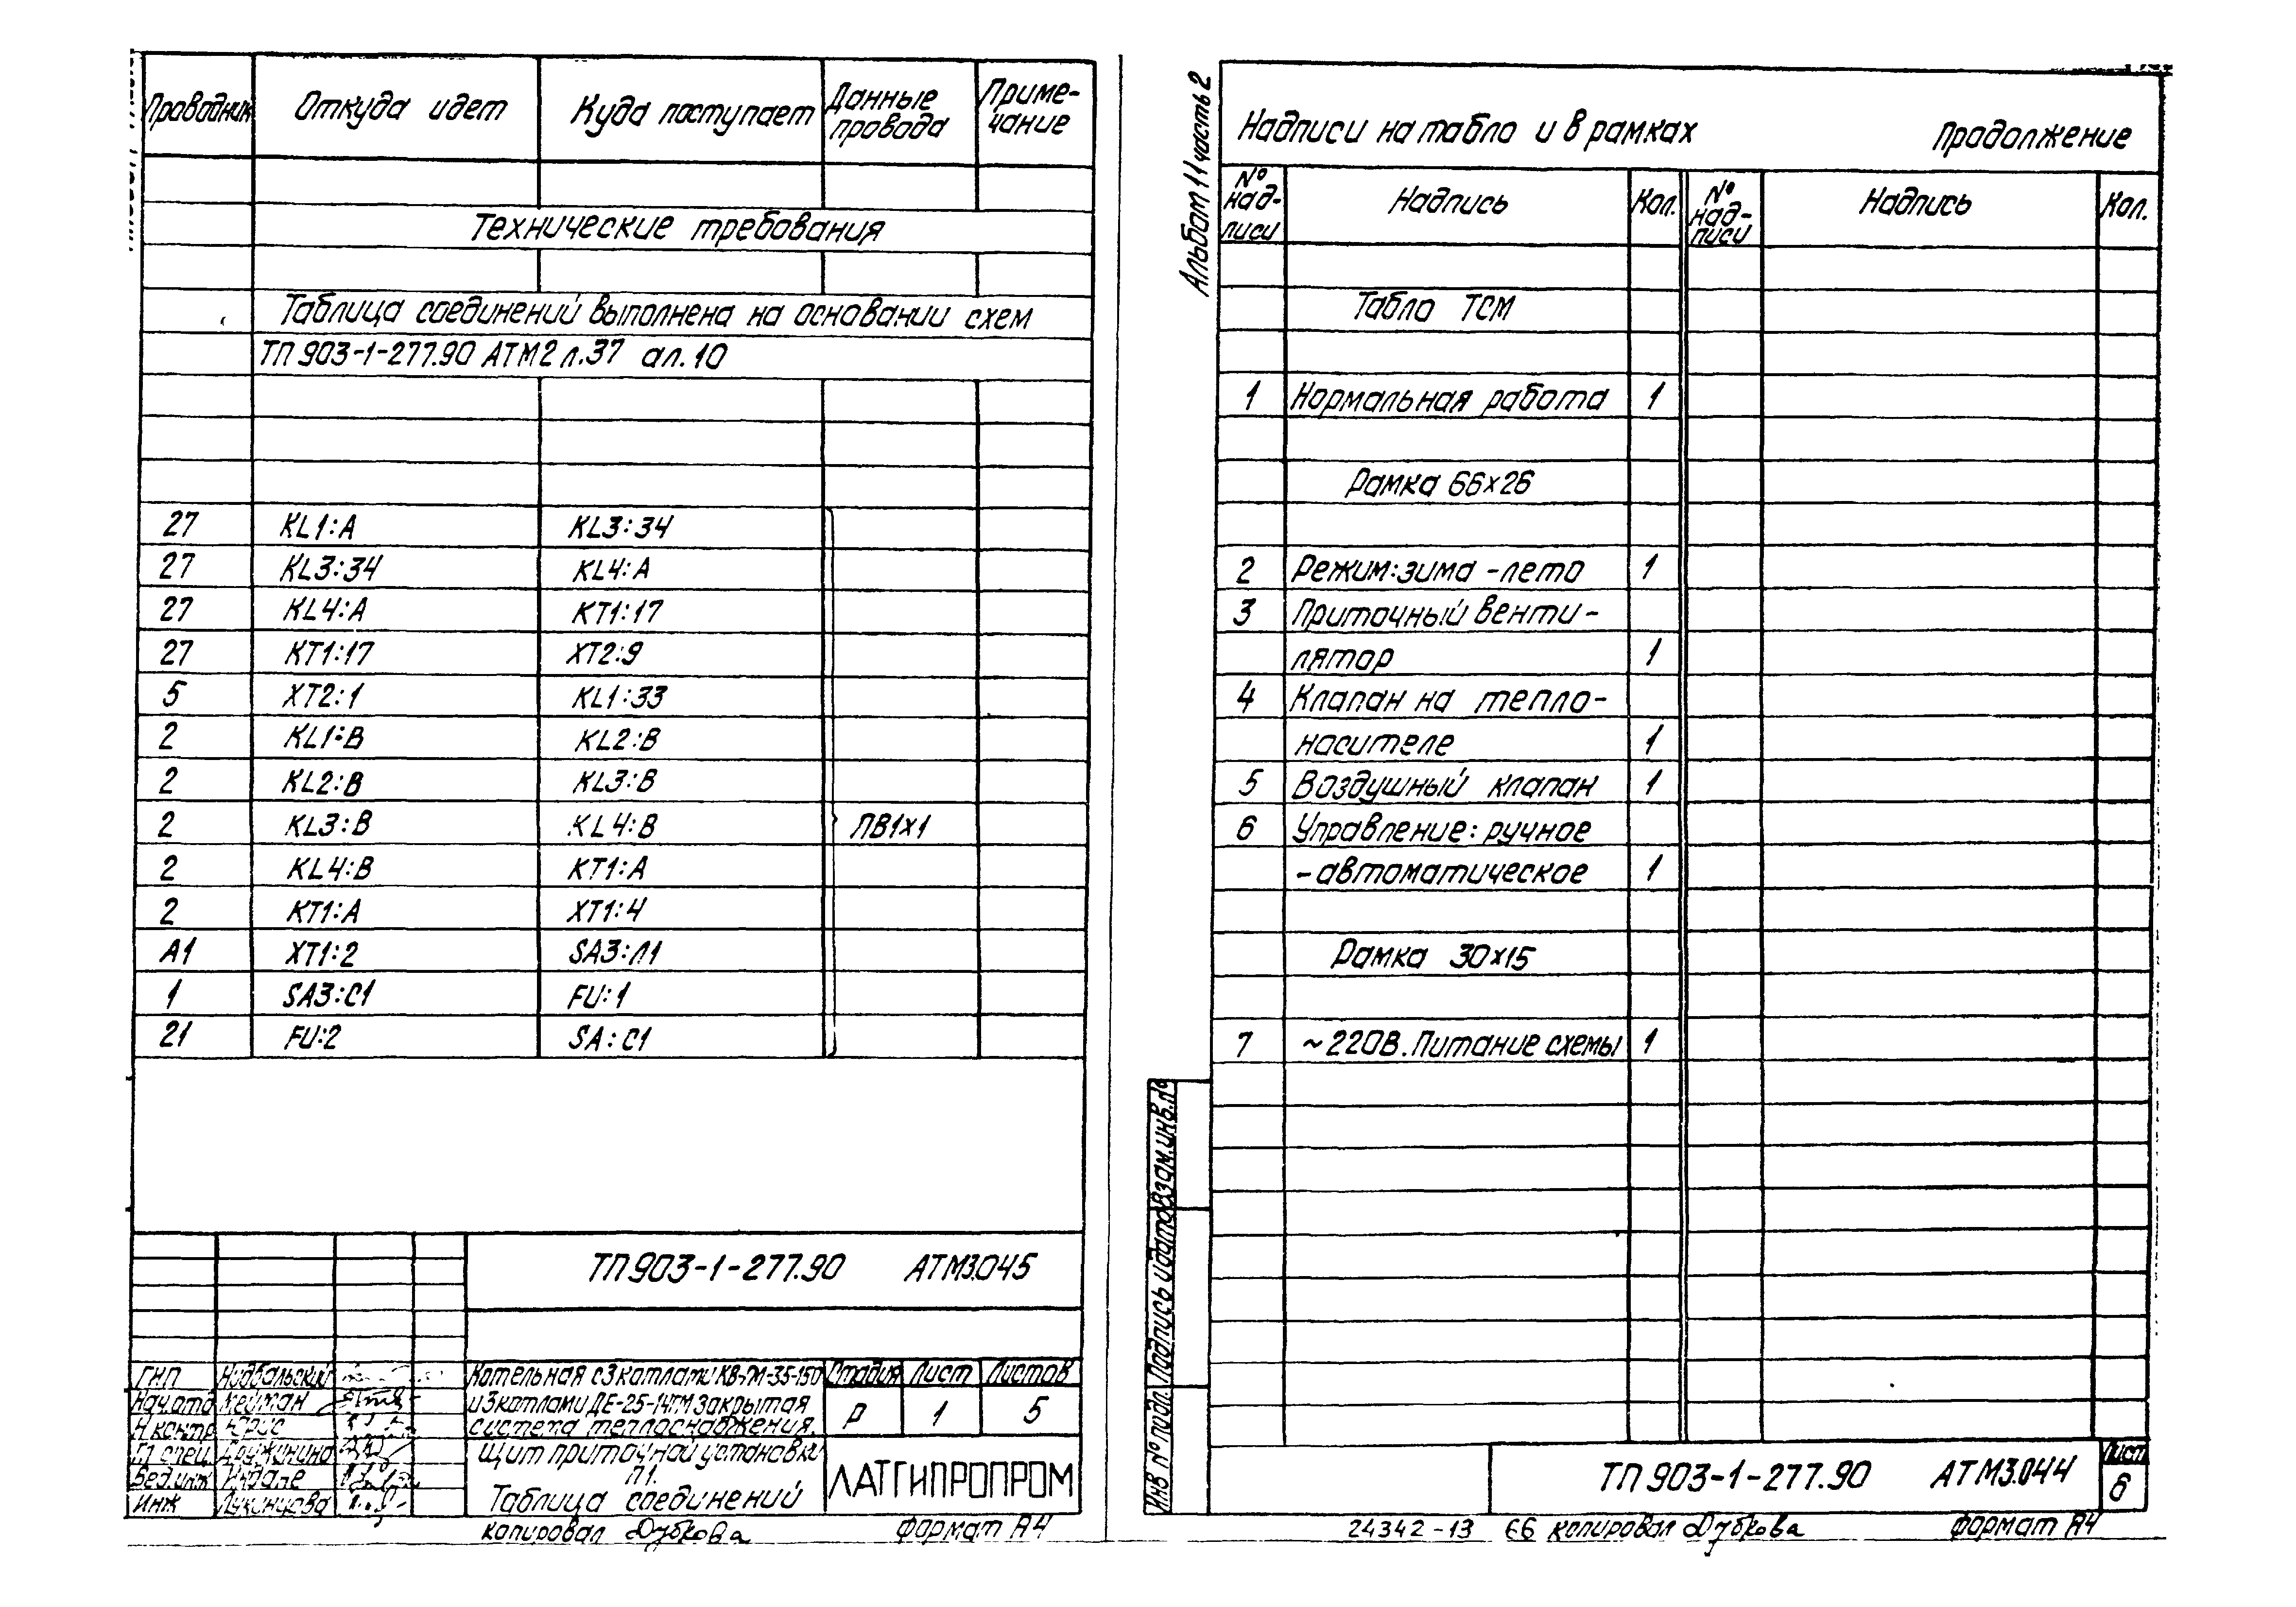 Проводник Откуда идет Куда поступает Данные провода Приме-чание
Технические требования
Таблица соединений выполнена на основании схем
ТП 903-1-277.90 АТМ2 л.37 ал.10
27 KL1:A KL3:34
27 KL3:34 KL4:A
27 KL4:A KT1:17
27 KT1:17 XT2:9
5 XT2:1 KL1:33
2 KL1:B KL2:B
2 KL2:B KL3:B
2 KL3:B KL4:B ПВ1х1
2 KL4:B KT1:A
2 KT1:A XT1:4
A1 XT1:2 SA3:Л1
1 SA3:C1 FU:1
21 FU:2 SA:C1
ТП 903-1-277.90 АТМ3.045
ГИП
Нач.отд
Н контр
Гл спец. Дружинина
Вед.инж
Инж
Котельная с 3 котлами КВ-ГМ-35-150
и 3 котлами ДЕ-25-14ГМ закрытая
система теплоснабжения.
Щит приточной установки
П1.
Таблица соединений
Стадия Лист Листов
Р 1 5
ЛАТГИПРОПРОМ
копировал Дубкова формат А4
Альбом 11 часть 2
Надписи на табло и в рамках Продолжение
№ над-писи Надпись Кол. № над-писи Надпись Кол.
Табло ТСМ
1 Нормальная работа 1
Рамка 66х26
2 Режим: зима - лето 1
3 Приточный венти-
лятор 1
4 Клапан на тепло-
носителе 1
5 Воздушный клапан 1
6 Управление: ручное
- автоматическое 1
Рамка 30х15
7 ~220В. Питание схемы 1
Инв № подл. Подпись и дата Взам.инв.№
ТП 903-1-277.90 АТМ3.044
Лист
6
24342-13 66 копировал Дубкова формат А4